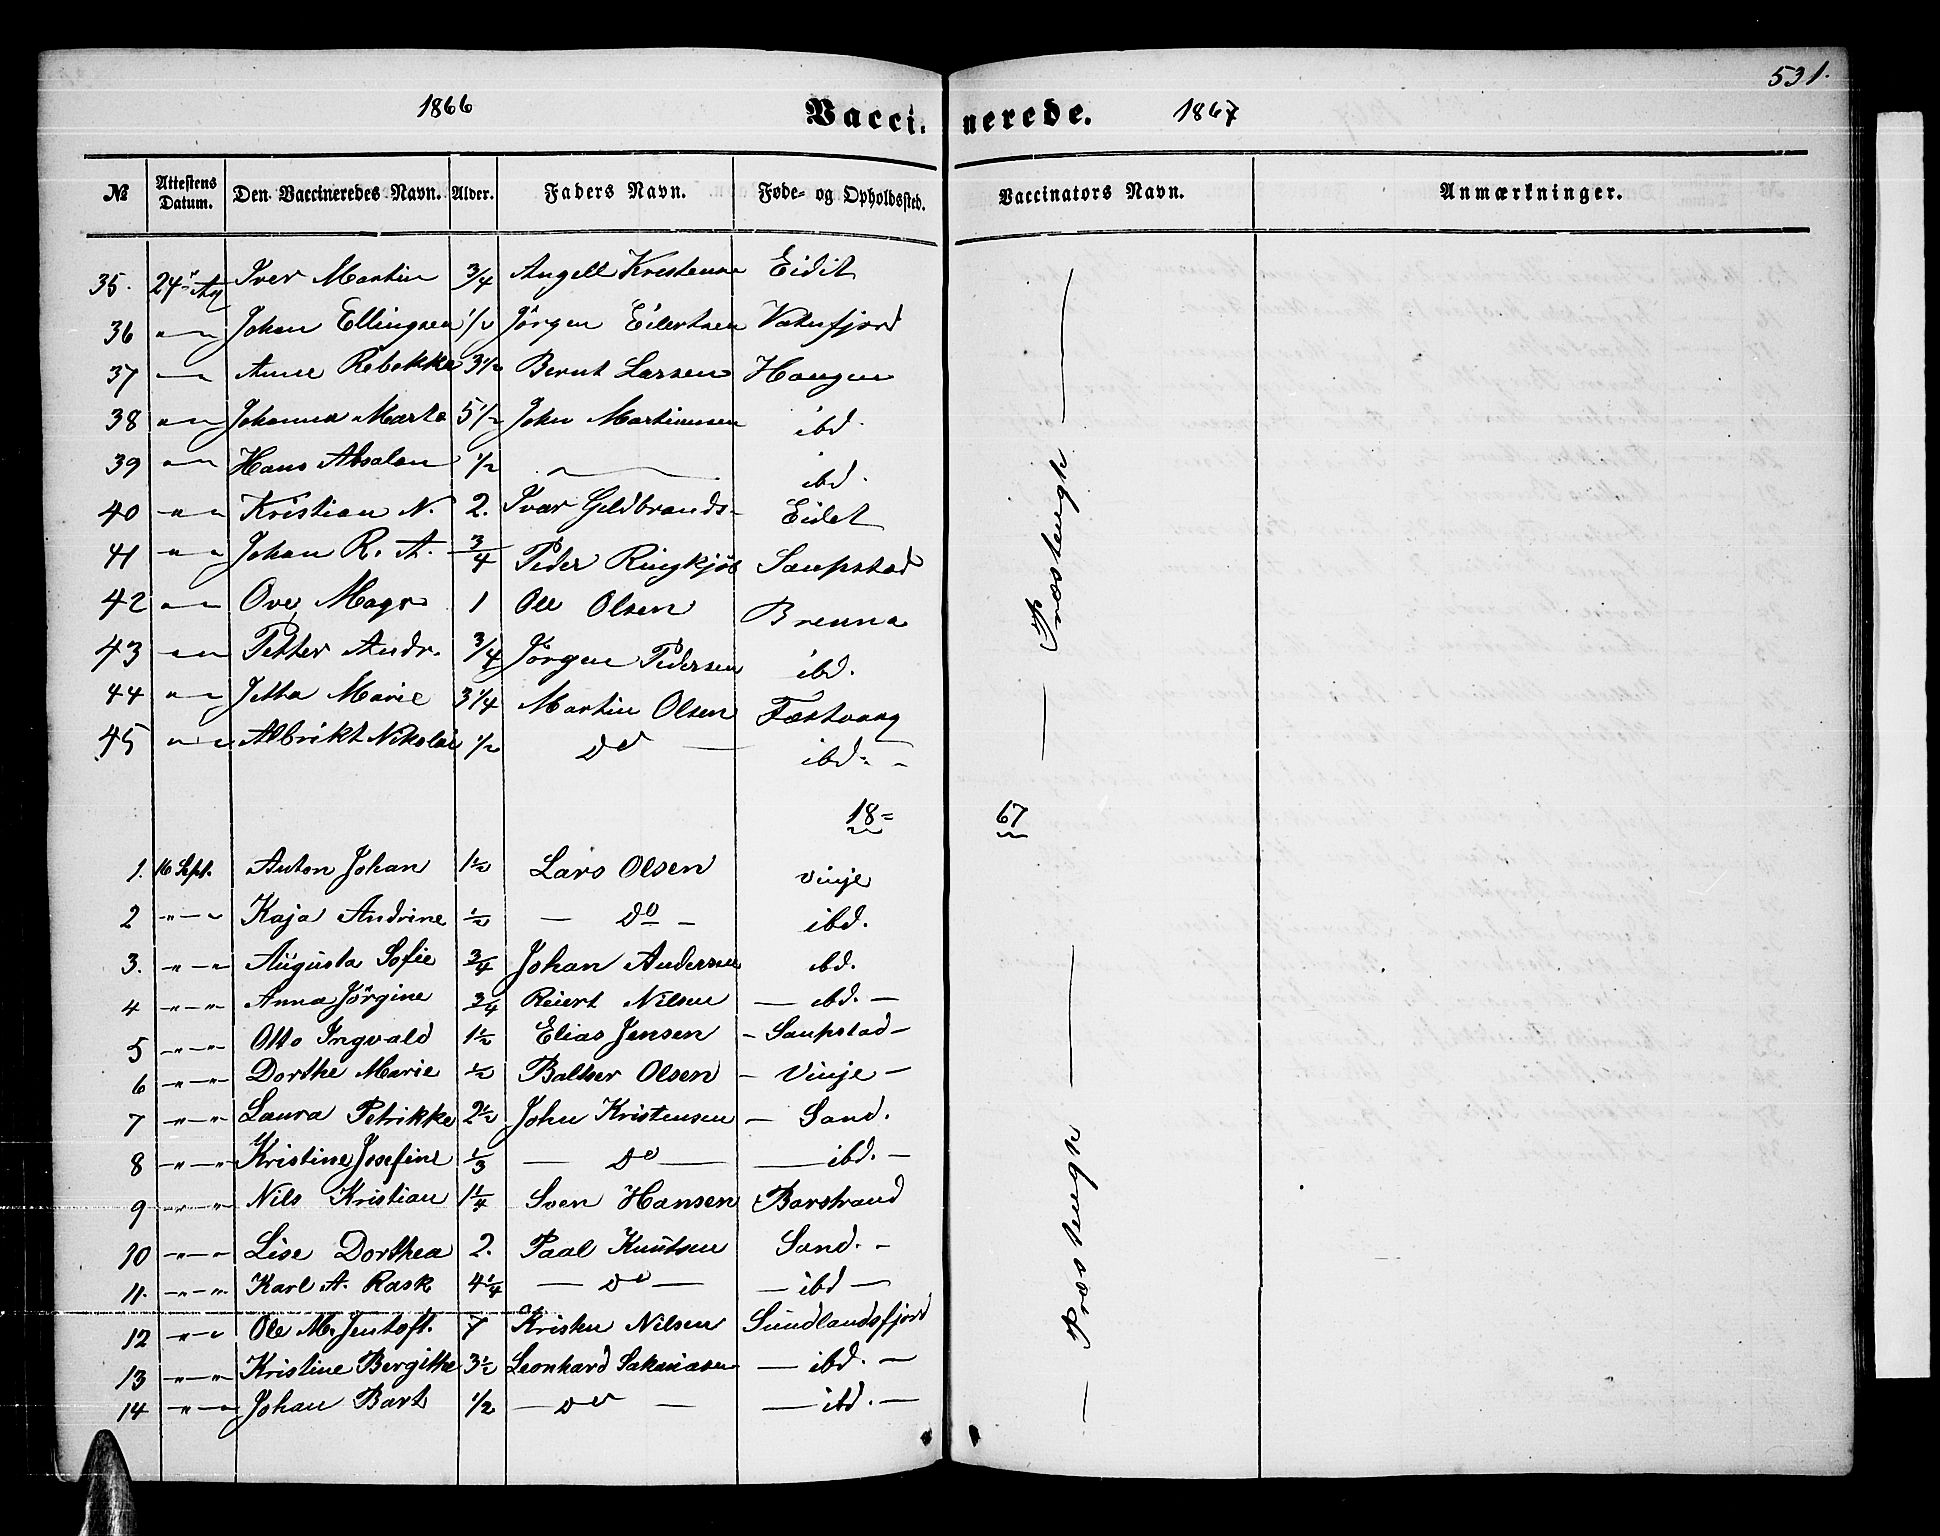 531.
1866 Vaccinerede. 1867
№ Attestens Datum. Den Vaccineredes Navn. Alder. Faders Navn. Føde- og Opholdssted. Vaccinators Navn. Anmærkninger.
35. 24 Iver Martin 3/4 Angell Eidit
36 " Johan Ellingsen 1/2 Jörgen Eilertsen Vatnfjord
37 — Anne Rebekka 3 1/2 Bernt Larsen Haugen
38 " Johanna Marta 5 1/2 John Martinusen ibd.
39 " Hans Absalon 1/2 — ibd.
40 " Kristian N. 2. Ivar Hildbrands- Eidet
41 " Johan R. A. 3/4 Peder Ringkjöb Saupstad
42 " Ove Mags 1 Ole Olsen Brenna
43 " Petter Andr. 3/4 Jörgen Pedersen ibd.
44 " Jetta Marie 3 1/4 Martin Olsen Festvaag
45 " Albrikt Nikolai 1/2 Do — ibd. -
— Præstengh —
18= 67
1. 16 Sept. Anton Johan 1 1/2 Lars Olsen Vinje
2 -"- Kaja Andrine 1/2 — Do — ibd.
3. "-" Augusta Sofie 3/4 Johan Andersen ibd.
4 "-" Anna Jörgine 3/4 Reiert Nilsen — ibd. —
5 "-" Otto Ingvald 1 1/2 Elias Jensen - Saupstad -
6 "-" Dorthe Marie 1/2 Baltser Olsen - Vinje -
7 "-" Laura Petrikke 2 1/2 John Kristensen - Sand.
8 "-" Kristine Josefine 1/3 — Do — — ibd. -
9 "-" Nils Kristian 1 1/4 Sven Hansen Barstrand
10 "-" Lise Dorthea 2. Paal Knutsen Sand. -
11. "-" Karl A. Rask 4 1/4 — Do — — ibd —
12 "-" Ole M. Jentoft. 7 Kristen Nilsen Sundlandsfjord
13 "-" Kristine Bergithe 3 1/2 Leonhard Sakariasen — ibd. —
14 "-" Johan Bart 1/2 — Do — — ibd. —
— Præstengh —